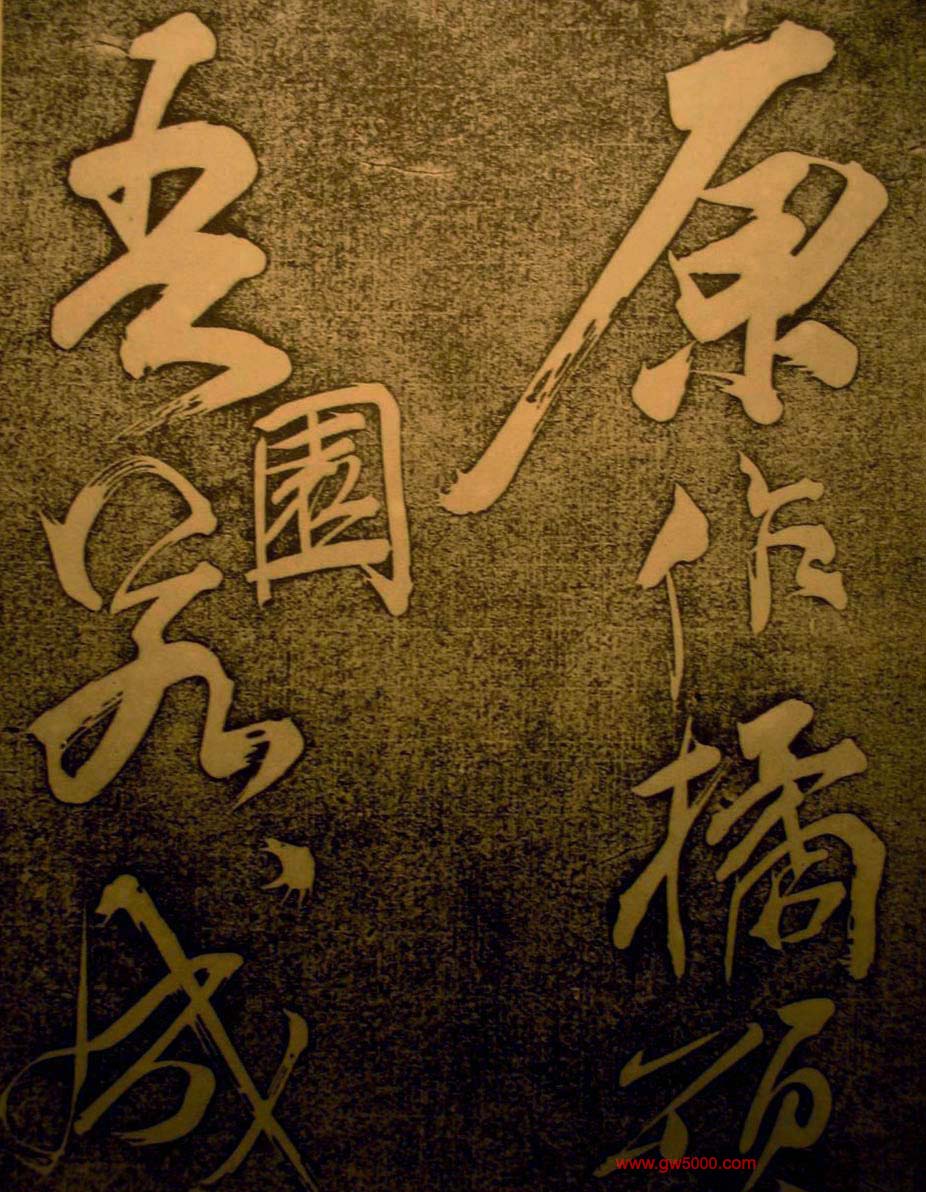 原作橘頌
吾園若成
www.gw5000.com